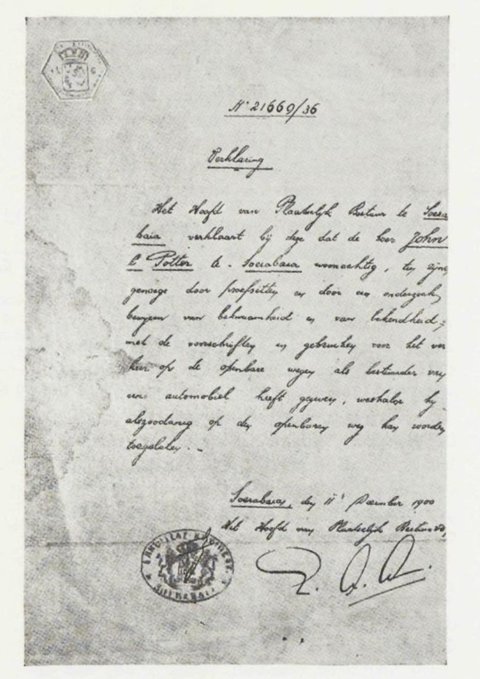 Nº 21660/36
Verklaring
Het Hoofd van Plaatselijk Bestuur te Soera
baia verklaart bij deze dat de heer John
C Potter te Soerabaia woonachtig, ten zijne
genoege door proefritten en door een onderzoek,
bewijzen van bekwaamheid en van bekendheid
met de voorschriften en gebruiken voor het ver
keer op de openbare wegen als bestuurder van
een automobiel heeft gegeven, weshalve hij
alszoodanig op den openbaren weg kan worden
toegelaten. -
Soerabaia, den 11e December 1900
Het Hoofd van Plaatselijk Bestuur,
SOERABAIA